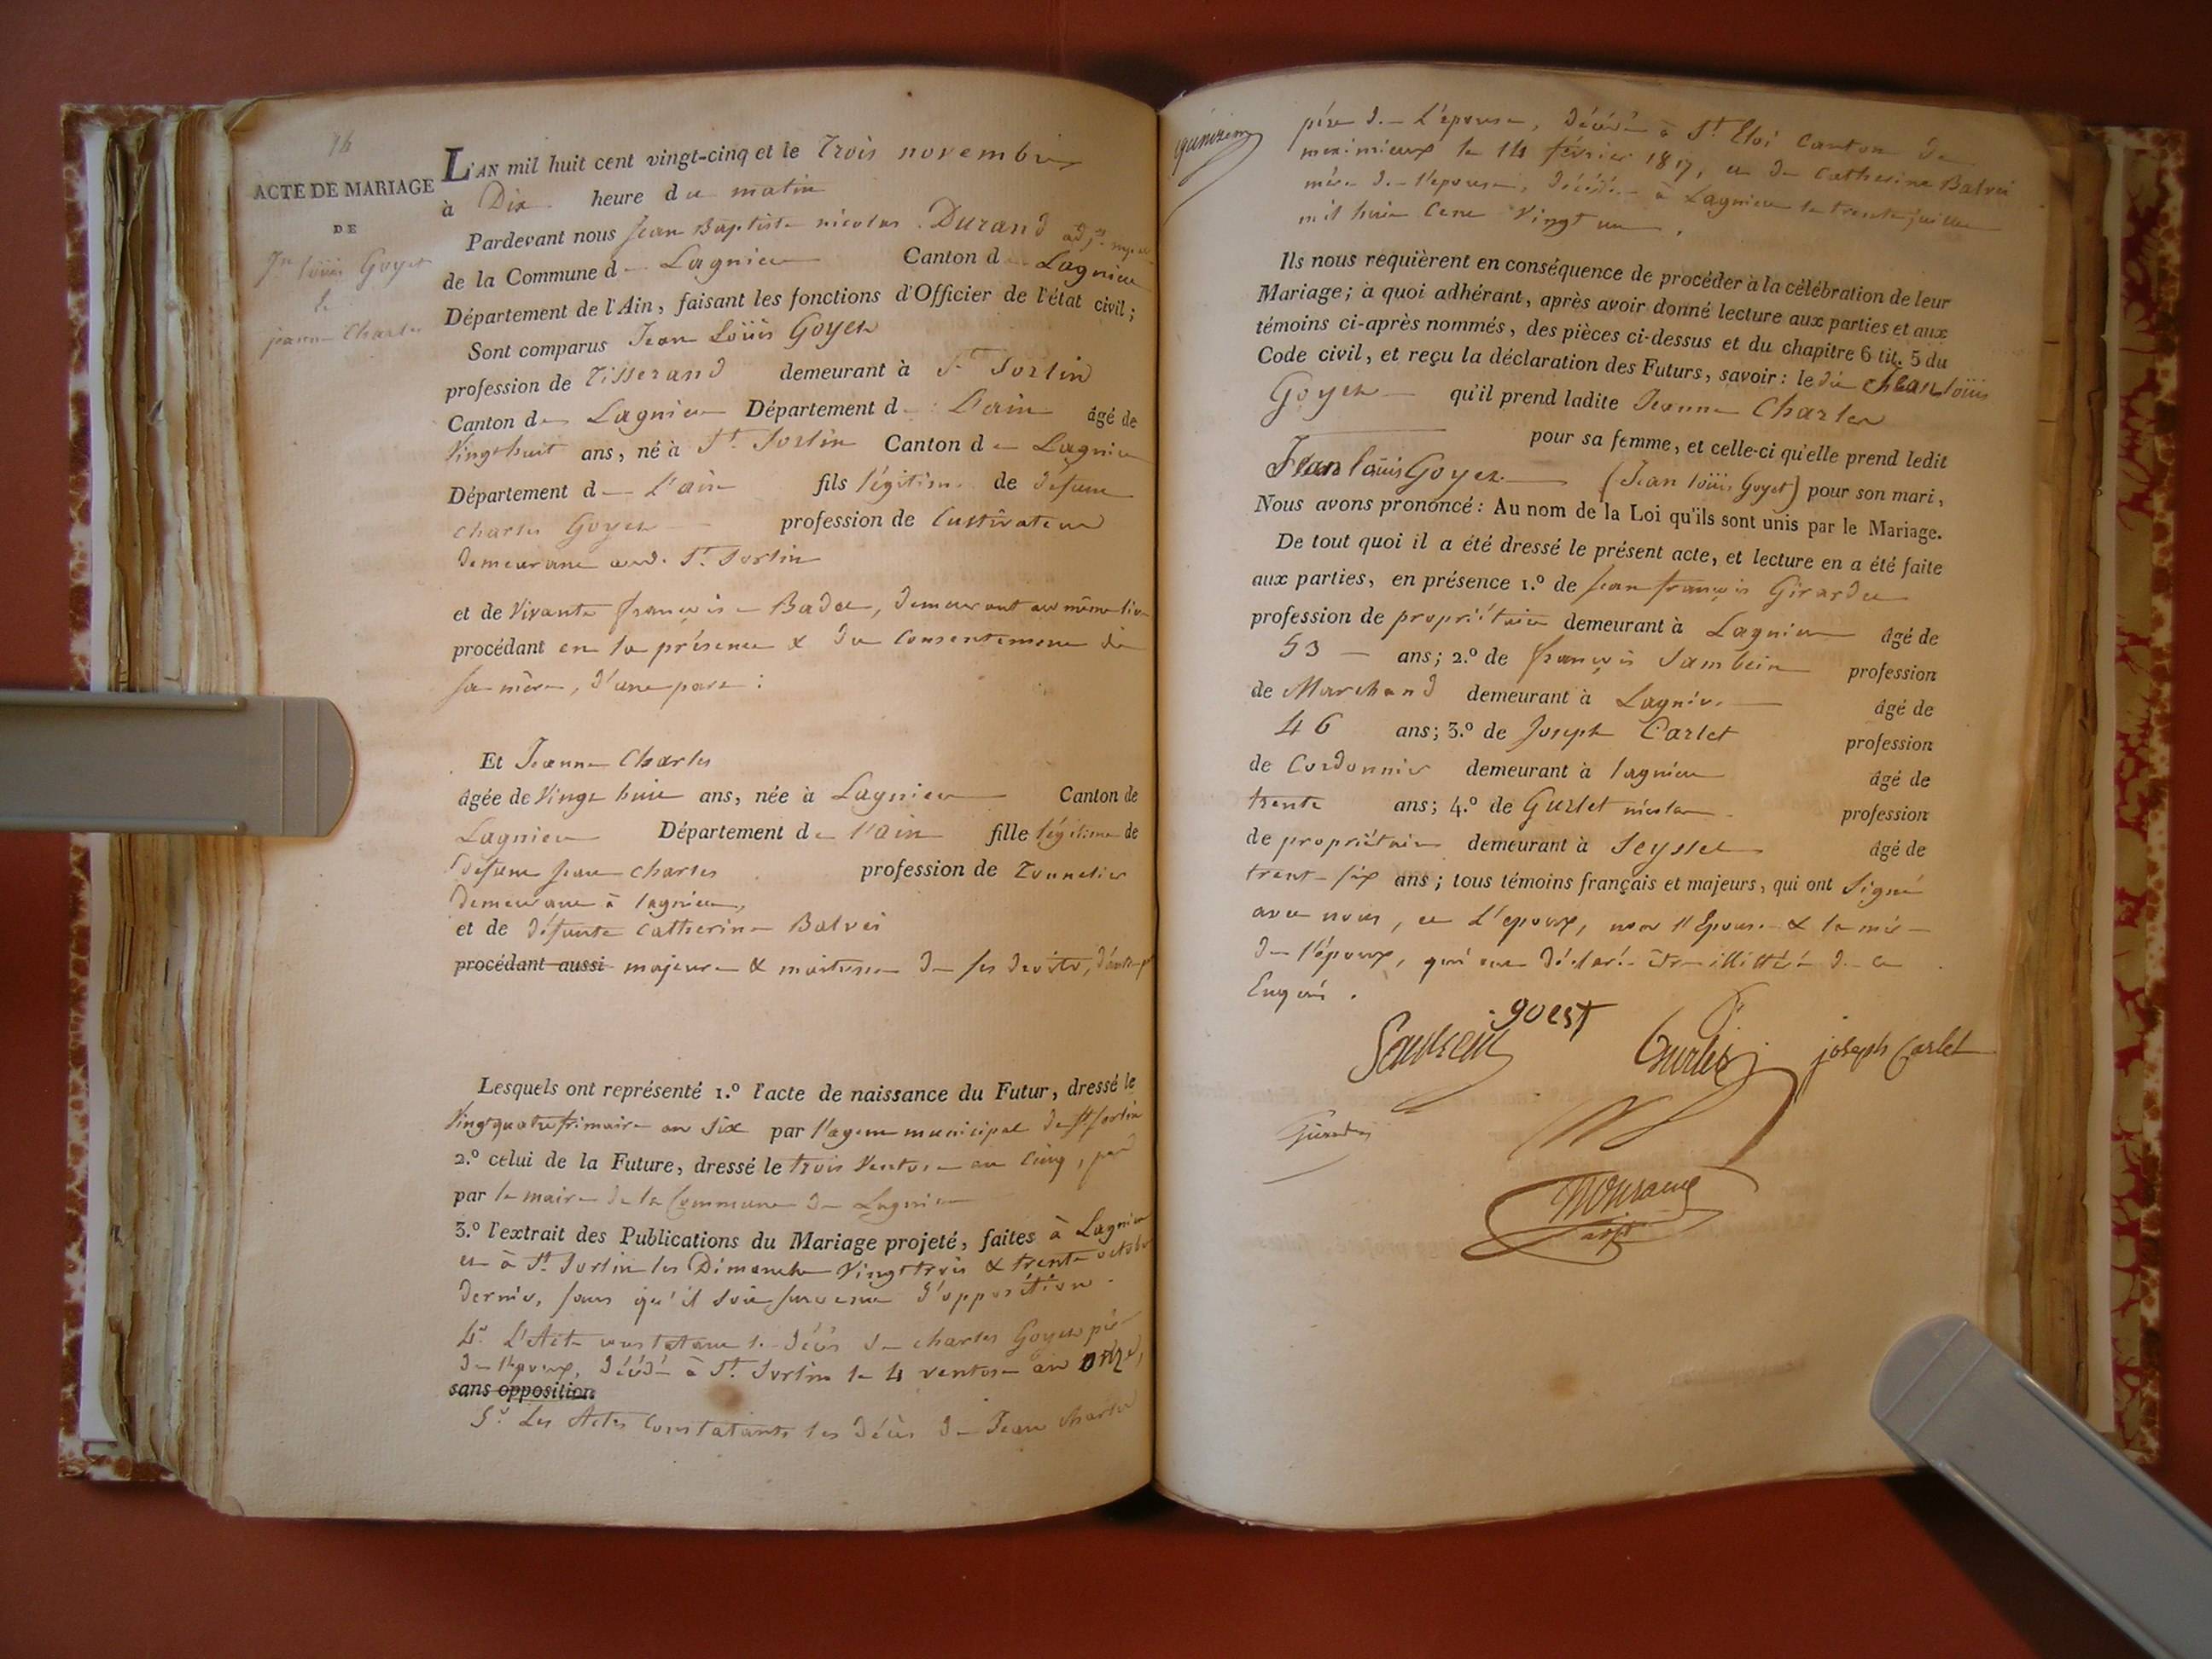 ACTE DE MARIAGE
DE
Jn louis Goyet
&
jeanne Charles
L'AN mil huit cent vingt-cinq et le Trois novembre
à Dix heure du matin
Pardevant nous Jean Baptiste nicolas Durand
de la Commune de Lagnieu Canton de Lagnieu
Département de l'Ain, faisant les fonctions d'Officier de l'état civil;
Sont comparus Jean Louis Goyet
profession de Tisserand demeurant à St. Sorlin
Canton de Lagnieu Département de L'ain âgé de
Vingt huit ans, né à St. Sorlin Canton de Lagnieu
Département de L'ain fils légitime de défunt
Charles Goyet profession de Cultivateur
demeurant aud. St. Sorlin
et de Vivante françoise Badet, demeurant au même lieu
procédant en la présence & du Consentement de
sa mère, d'une part :
Et Jeanne Charles
âgée de Vingt huit ans, née à Lagnieu Canton de
Lagnieu Département de l'ain fille légitime de
défunt Jean Charles profession de Tonnelier
demeurant à lagnieu,
et de défunte Catherine Balvei
procédant aussi majeure & maitresse de ses droits, d'autre pt
Lesquels ont représenté 1.º l'acte de naissance du Futur, dressé le
Vingt quatre frimaire an Six par l'agent municipal de St Sorlin
2.º celui de la Future, dressé le trois Ventose an Cinq,
par le maire de la Commune de Lagnieu
3.º l'extrait des Publications du Mariage projeté, faites à Lagnieu
et à St. Sorlin les Dimanche Vingt trois & trente octobre
dernier, sans qu'il soit survenu d'opposition.
4.º L'Acte constatant le décès de Charles Goyet père
de l'époux, décédé à St. Sorlin le 4 ventose an onze,
sans opposition
5.º Les Actes Constatants les décès de Jean Charles
père de L'épouse, décédé à St. Eloi Canton de
meximieux le 14 février 1817, et de Catherine Balvei
mère de l'épouse, décédée à Lagnieu le trente juillet
mil huit Cent Vingt un.
Ils nous requièrent en conséquence de procéder à la célébration de leur
Mariage; à quoi adhérant, après avoir donné lecture aux parties et aux
témoins ci-après nommés, des pièces ci-dessus et du chapitre 6 tit. 5 du
Code civil, et reçu la déclaration des Futurs, savoir : le dit Jean louis
Goyet qu'il prend ladite Jeanne Charles
pour sa femme, et celle-ci qu'elle prend ledit
Jean louis Goyet (Jean louis Goyet) pour son mari,
Nous avons prononcé : Au nom de la Loi qu'ils sont unis par le Mariage.
De tout quoi il a été dressé le présent acte, et lecture en a été faite
aux parties, en présence 1.º de Jean françois Girardet
profession de propriétaire demeurant à Lagnieu âgé de
53 ans; 2.º de françois profession
de Marchand demeurant à Lagnieu âgé de
46 ans; 3.º de Joseph Carlet profession
de Cordonnier demeurant à lagnieu âgé de
trente ans; 4.º de Gurlet nicolas profession
de propriétaire demeurant à Seyssel âgé de
trente-six ans; tous témoins français et majeurs, qui ont Signé
avec nous, et L'epoux, non l'Epouse & la mère
de l'époux, qui ont déclaré être illittéré de ce
Enquis.
goest
Gurlet
joseph Carlet
Girardet